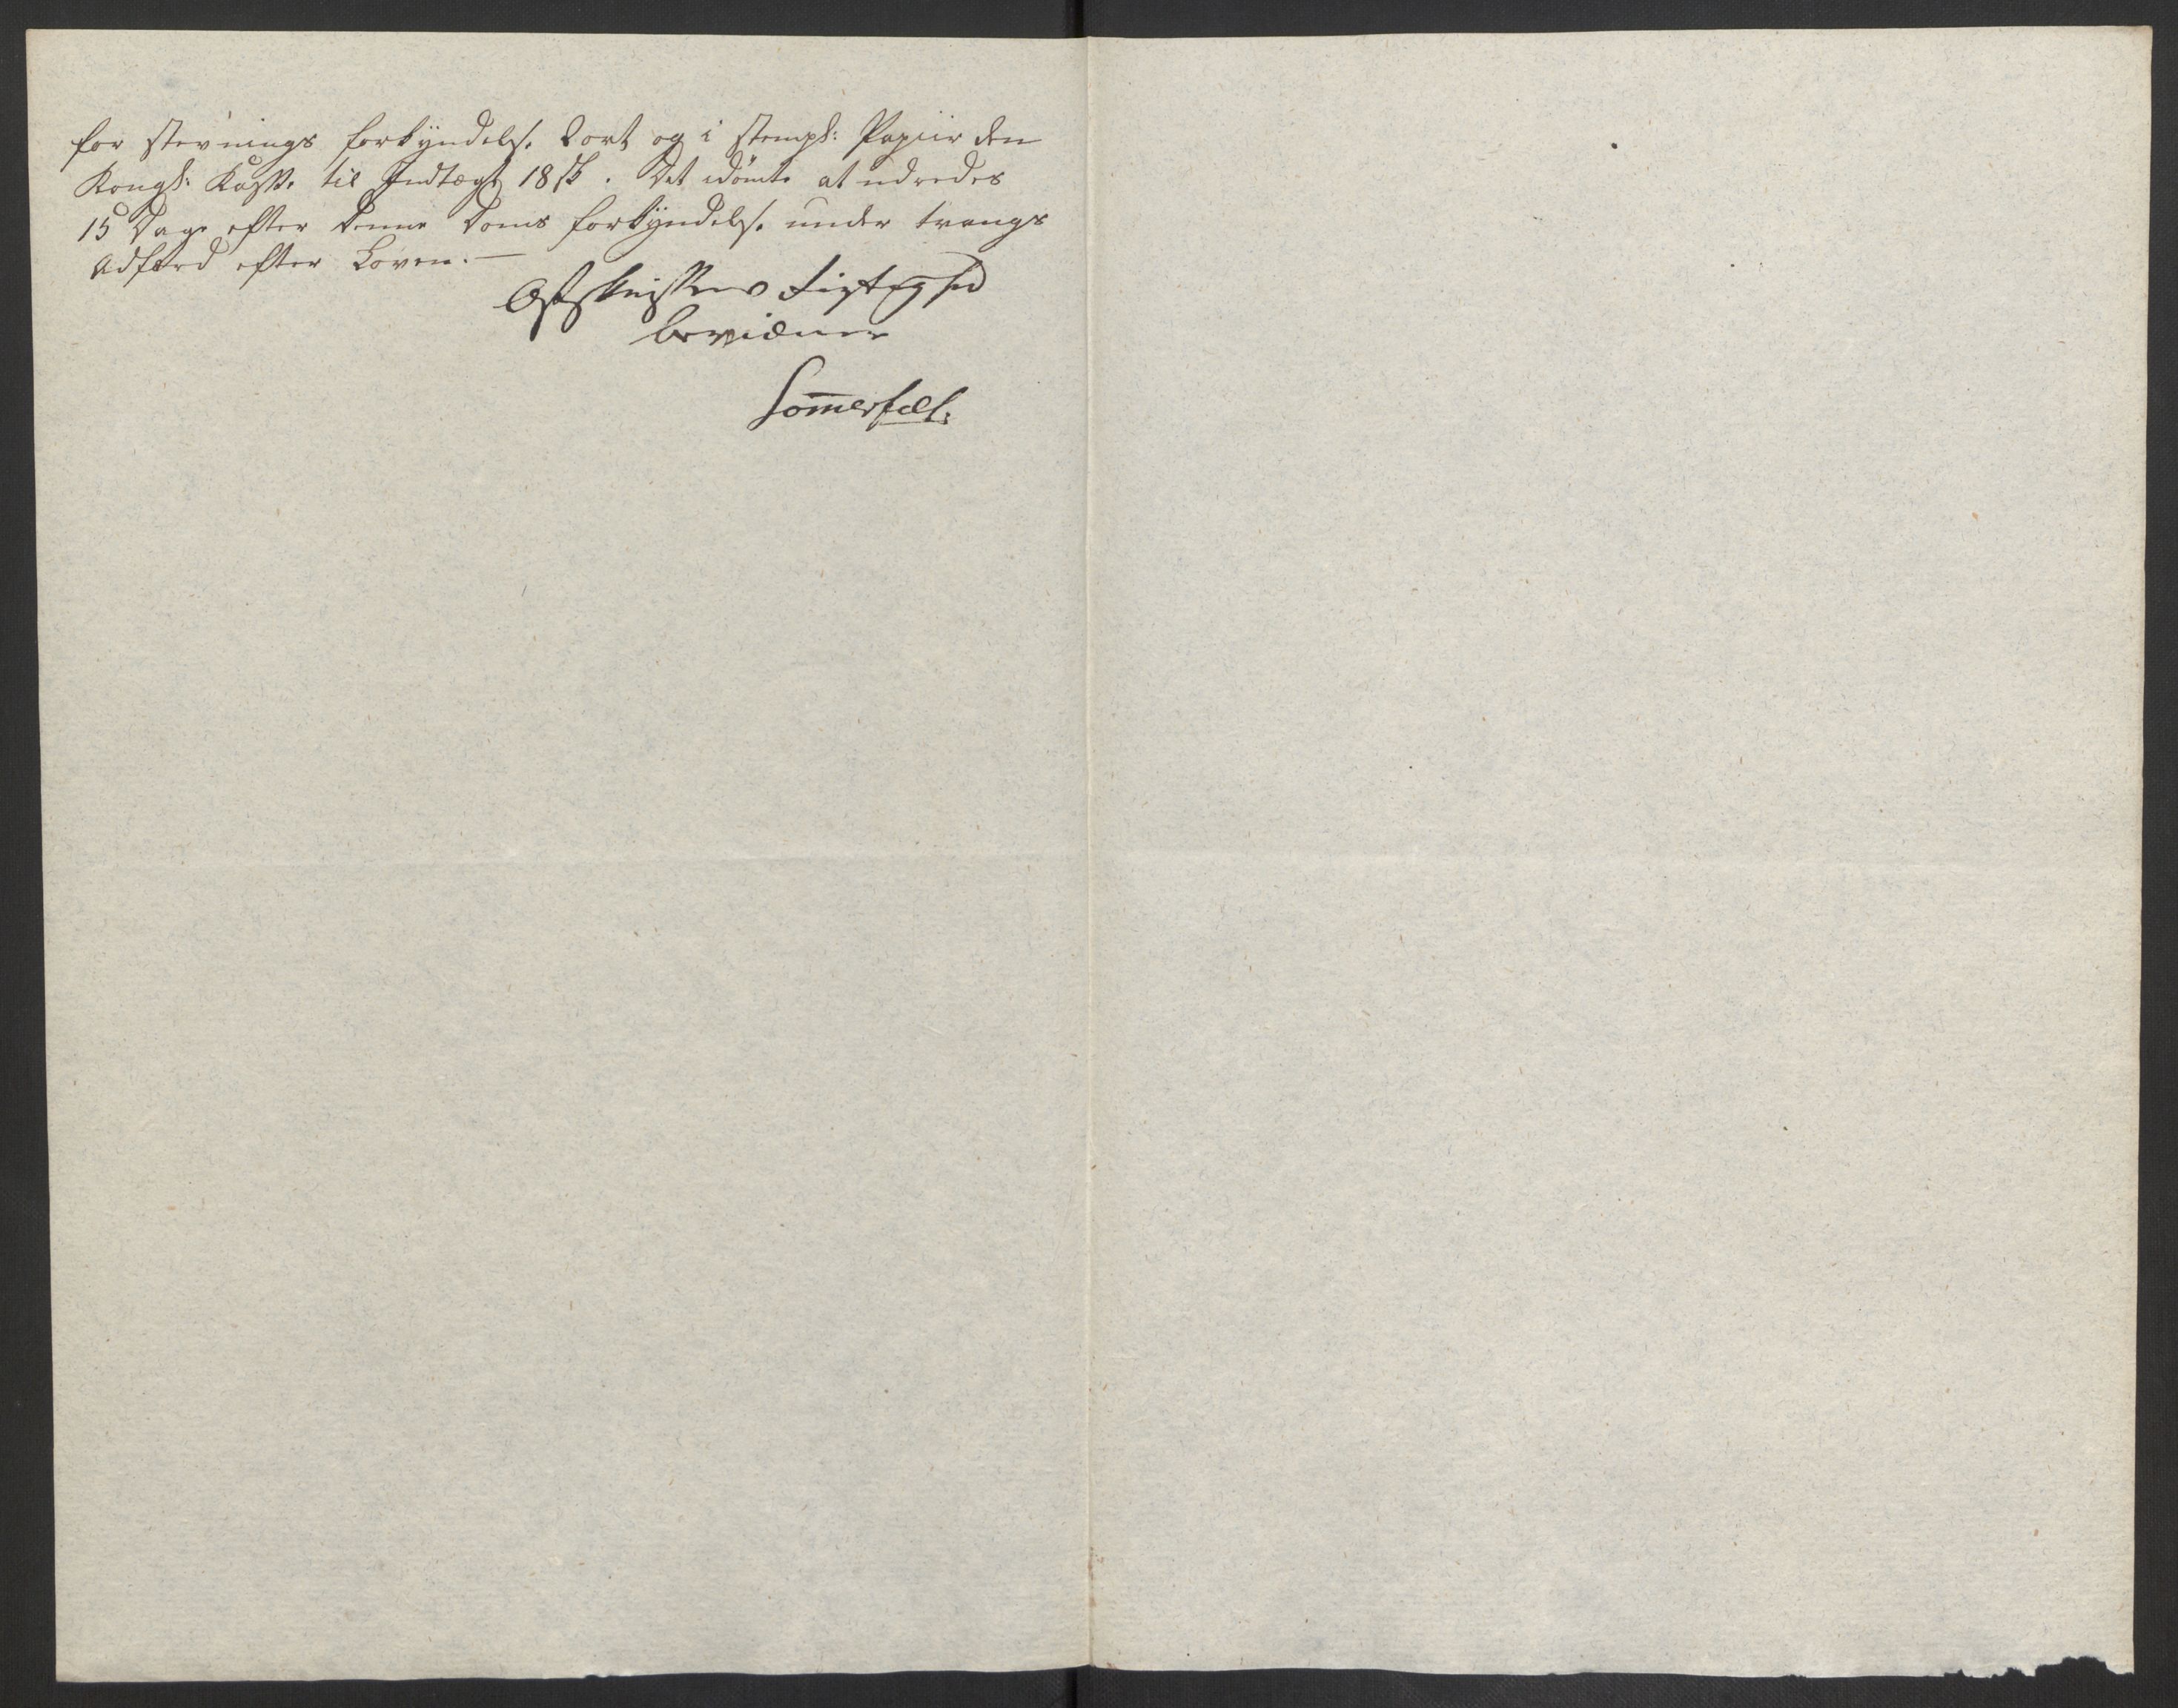 for stevnings forkyndelse 2 ort og i stempl: Papiir den
Kongl: Kasse til Indtægt 18 sk. Det idømte at udredes
15 Dage efter denne Doms forkyndelse under tvangs
Adfærd efter Loven. —
Afskriftens Rigtighed
bevidner
Som̅erfelt.